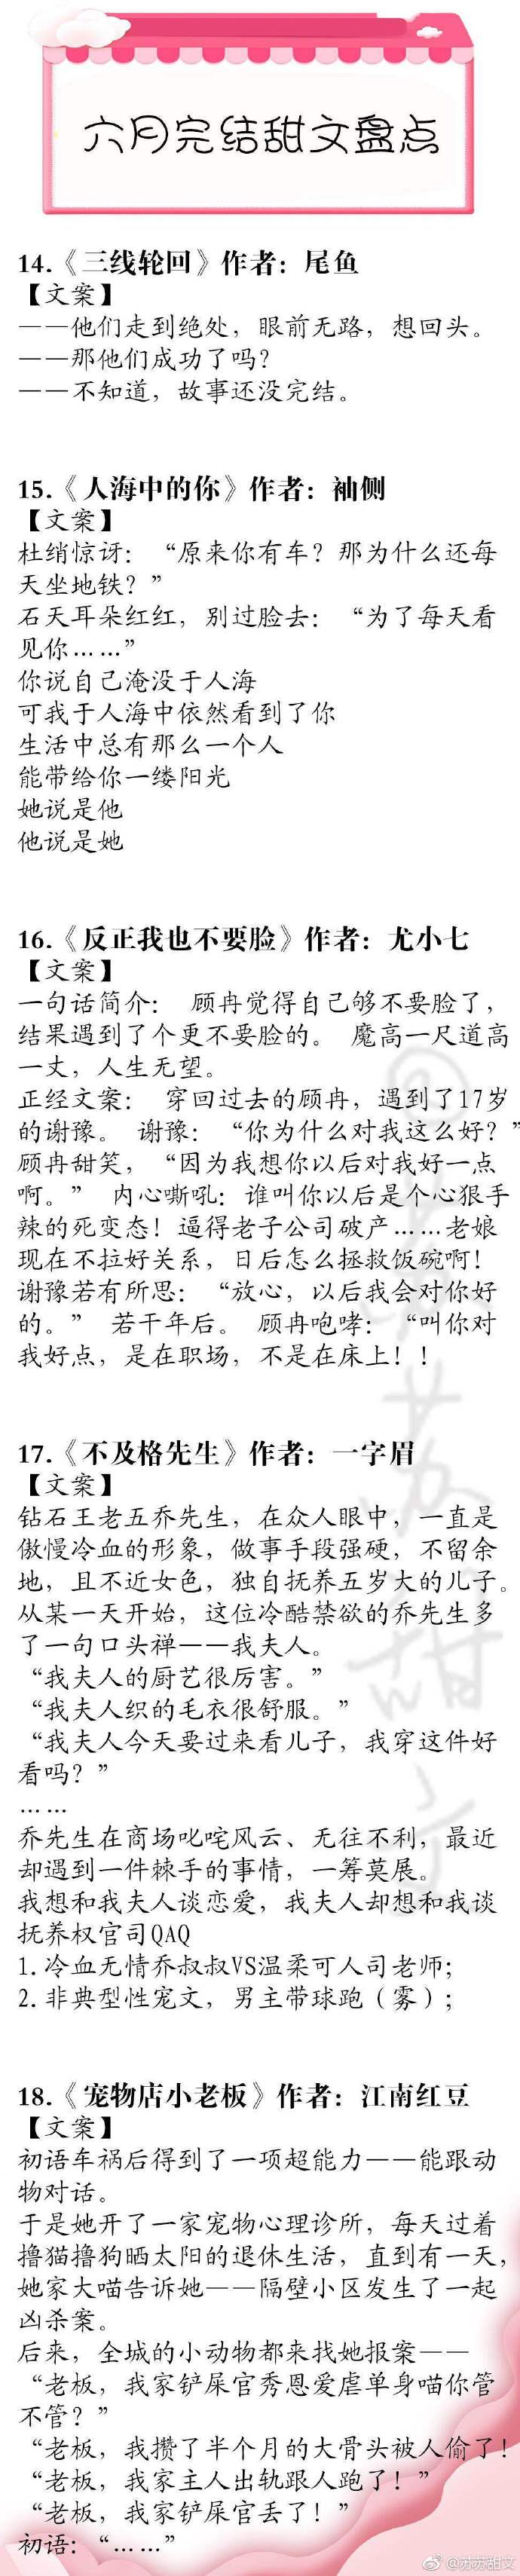 六月完结甜文盘点
14.《三线轮回》作者：尾鱼
【文案】
——他们走到绝处，眼前无路，想回头。
——那他们成功了吗？
——不知道，故事还没完结。
15.《人海中的你》作者：袖侧
【文案】
杜绡惊讶：“原来你有车？那为什么还每
天坐地铁？”
石天耳朵红红，别过脸去：“为了每天看
见你……”
你说自己淹没于人海
可我于人海中依然看到了你
生活中总有那么一个人
能带给你一缕阳光
她说是他
他说是她
16.《反正我也不要脸》作者：尤小七
【文案】
一句话简介： 顾冉觉得自己够不要脸了，
结果遇到了个更不要脸的。 魔高一尺道高
一丈，人生无望。
正经文案： 穿回过去的顾冉，遇到了17岁
的谢豫。 谢豫：“你为什么对我这么好？”
顾冉甜笑，“因为我想你以后对我好一点
啊。” 内心嘶吼：谁叫你以后是个心狠手
辣的死变态！逼得老子公司破产……老娘
现在不拉好关系，日后怎么拯救饭碗啊！
谢豫若有所思：“放心，以后我会对你好
的。” 若干年后。 顾冉咆哮：“叫你对
我好点，是在职场，不是在床上！！
17.《不及格先生》作者：一字眉
【文案】
钻石王老五乔先生，在众人眼中，一直是
傲慢冷血的形象，做事手段强硬，不留余
地，且不近女色，独自抚养五岁大的儿子。
从某一天开始，这位冷酷禁欲的乔先生多
了一句口头禅——我夫人。
“我夫人的厨艺很厉害。”
“我夫人织的毛衣很舒服。”
“我夫人今天要过来看儿子，我穿这件好
看吗？”
……
乔先生在商场叱咤风云、无往不利，最近
却遇到一件棘手的事情，一筹莫展。
我想和我夫人谈恋爱，我夫人却想和我谈
抚养权官司QAQ
1.冷血无情乔叔叔VS温柔可人司老师；
2.非典型性宠文，男主带球跑（雾）；
18.《宠物店小老板》作者：江南红豆
【文案】
初语车祸后得到了一项超能力——能跟动
物对话。
于是她开了一家宠物心理诊所，每天过着
撸猫撸狗晒太阳的退休生活，直到有一天，
她家大喵告诉她——隔壁小区发生了一起
凶杀案。
后来，全城的小动物都来找她报案——
“老板，我家铲屎官秀恩爱虐单身喵你管
不管？”
“老板，我攒了半个月的大骨头被人偷了！
“老板，我家主人出轨跟人跑了！”
“老板，我家铲屎官丢了！”
初语：“……”
@苏苏甜文